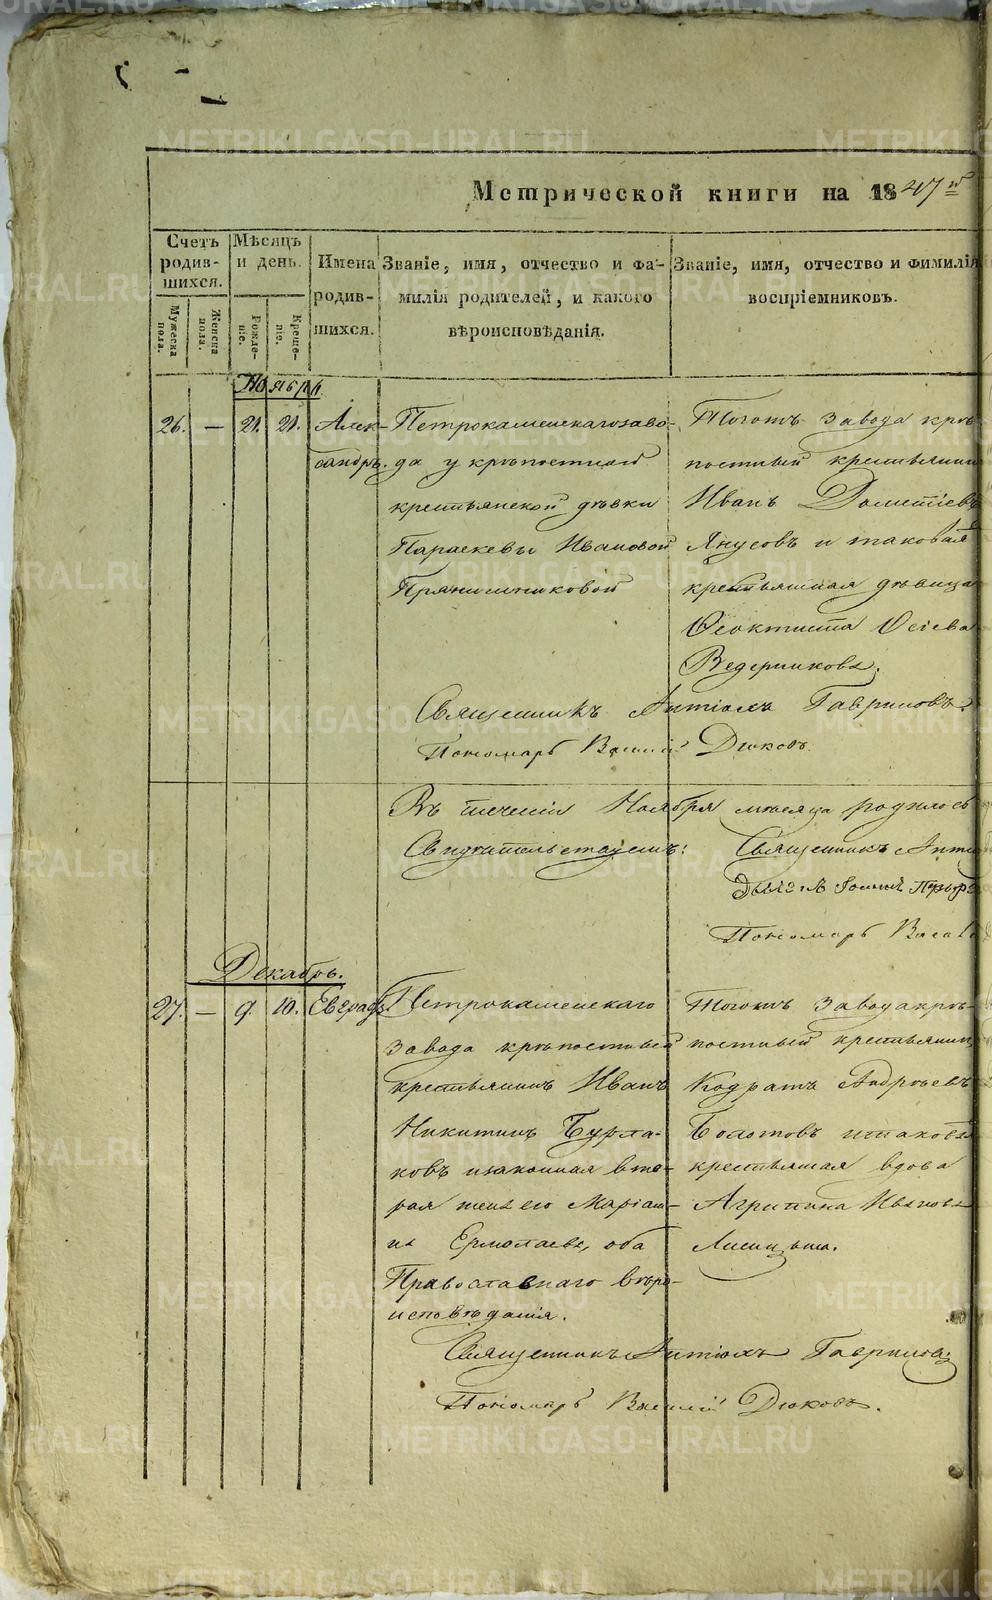 Метрической книги на 1847й
Счетъ родив-шихся.
Мужеска пола.
Женска пола.
Мѣсяцъ и день.
Рожде-ніе.
Креще-ніе.
Имена родив-шихся.
Званіе, имя, отчество и фа-
милія родителей, и какого
вѣроисповѣданія.
Званіе, имя, отчество и фимилія
воспріемниковъ.
Ноября
26. — 21. 21. Алек-
сандръ.
Петрокаменскаго заво-
да у крѣпостной
крестьянской дѣвки
Параскевы Ивановой
Пряничниковой
Тогожъ завода крѣ-
постный крестьянинъ
Иванъ Дометіевъ
Янусовъ и таковая
крестьянная дѣвица
Феоктиста Осіева
Ведерникова.
Священникъ Антіохъ Гавриловъ.
Пономарь Василій Дюковъ.
Въ теченіи Ноября мѣсяца родилось
Свидѣтельствуемъ: Священникъ Анті
Пономарь Васи
Декабрь.
27. — 9. 10. Евграфъ
Петрокаменскаго
завода крѣпостный
крестьянинъ Иванъ
Никитинъ Бурла-
ковъ и законная вто-
рая жена его Маріам-
на Ермолаева, оба
Православнаго вѣро-
исповѣданія.
Тогожъ завода крѣ-
постный крестьянинъ
Кодратъ Андреевъ
Болотовъ и таковая
крестьянная вдова
Агрипина Иванова
Лисицына.
Священникъ Антіохъ Гавриловъ
Пономарь Василій Дюковъ.
METRIKI.GASO-URAL.RU